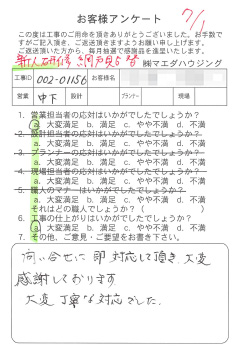 お客様アンケート
7/1
この度は工事のご用命を頂きありがとうございました。お手数で
すがご記入頂き、ご返送頂きますようお願い申し上げます。
ご返送頂いた方から、毎月抽選で感謝品を進呈いたします。
㈱マエダハウジング
工事ID 002-01156 お客様名
営業 中下 設計 プランナー 現場
1. 営業担当者の応対はいかがでしたでしょうか?
a. 大変満足 b. 満足 c. やや不満 d. 不満
2. 設計担当者の応対はいかがでしたでしょうか?
a. 大変満足 b. 満足 c. やや不満 d. 不満
3. プランナーの応対はいかがでしたでしょうか?
a. 大変満足 b. 満足 c. やや不満 d. 不満
4. 現場担当者の応対はいかがでしたでしょうか?
a. 大変満足 b. 満足 c. やや不満 d. 不満
5. 職人のマナーはいかがでしたでしょうか?
a. 大変満足 b. 満足 c. やや不満 d. 不満
それはどの職人でしょうか?( )
6. 工事の仕上がりはいかがでしたでしょうか?
a. 大変満足 b. 満足 c. やや不満 d. 不満
7. その他、ご意見・ご要望をお書き下さい。
問い合せに 即 対応して頂き 大変
感謝しております
大変 丁寧な対応でした。